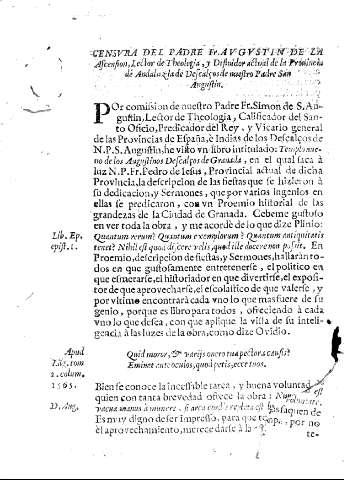 CENSVRA DEL PADRE Fr. AVGVSTIN DE LA
Ascension, Lector de Theologia, y Difinidor actual de la Provincia
de Andaluzia de Descalços de nuestro Padre San
Augustin.
POr comission de nuestro Padre Fr. Simon de S. Au-
gustin, Lector de Theologia, Calificador del San-
to Oficio, Predicador del Rey, y Vicario general
de las Provincias de España, è Indias de los Descalços de
N.P.S. Augustin, he visto vn libro intitulado:
no de los Augustinos Descalços de Granada, en el qual saca à
luz N.P. Fr. Pedro de Iesus, Provincial actual de dicha
Provincia, la descripcion de las fiestas que se hizieron à
su dedicacion, y Sermones, que por varios ingenios en
ellas se predicaron, con vn Proemio historial de las
grandezas de la Ciudad de Granada. Cebeme gustoso
en ver toda la obra, y me acordè de lo que dize Plinio:
Lib. Ep. Quantum rerum? Quantum exemplorum? Quantum antiquitatis
epist. 1. tenet? Nihil est quod discere velis, quod ille docere non possit. En
Proemio, descripcion de fiestas, y Sermones, hallaràn to-
dos en que gustosamente entretenerse, el politico en
que esmerarse, el historiador en que divertirse, el exposi-
tor de que aprovecharse, el escolastico de que valerse, y
por vltimo encontrarà cada vno lo que mas fuere de su
genio, porque es libro para todos, ofreciendo à cada
vno lo que desea, con que aplique la vista de su inteli-
gencia à las luzes de la obra, como dize Ovidio.
Apud Quid moror, & varijs onero tua pectora causis?
tom Eminet ante oculos, quod petis, ecce tuos.
2. colum.
1565. Bien se conoce la incessible tarea, y buena voluntad
quien con tanta brevedad ofrece la obra:
D. Aug. vacua manus à munere, si arca cordis repleta est
Es muy digno de ser impressa, para que todos saquen de
èl aprovechamiento, merece darse à la por no
te-